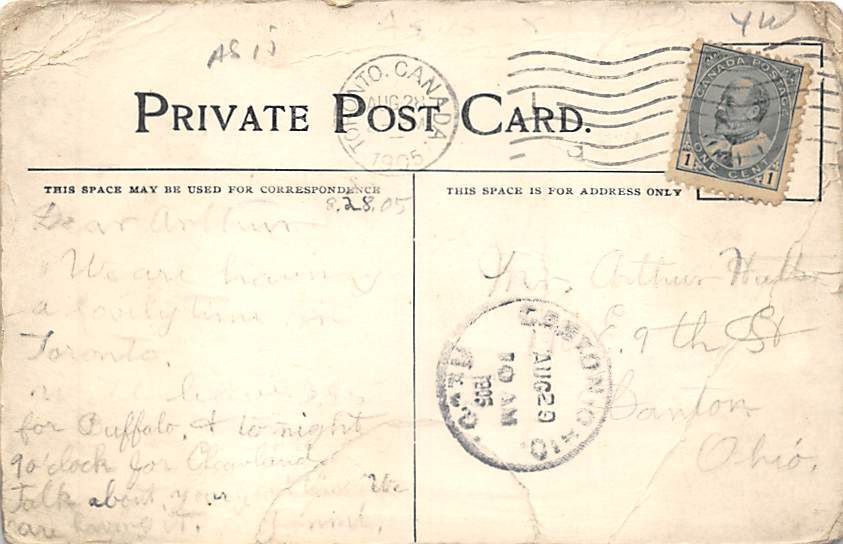 AS IS
YW
TORONTO, CANADA.
AUG 28
1905
CANADA POSTAGE
1 ONE CENT 1
PRIVATE POST CARD.
THIS SPACE MAY BE USED FOR CORRESPONDENCE
8.28.05
Dear Arthur
We are having
a lovely time in
Toronto.
leave
for Buffalo, & to night
9 o'clock for Cleveland.
Talk about your We
are having it.
THIS SPACE IS FOR ADDRESS ONLY
Mr. Arthur
E. 9th St
Canton
Ohio.
CANTON, OHIO.
AUG 29
10 AM
1905
REC'D.